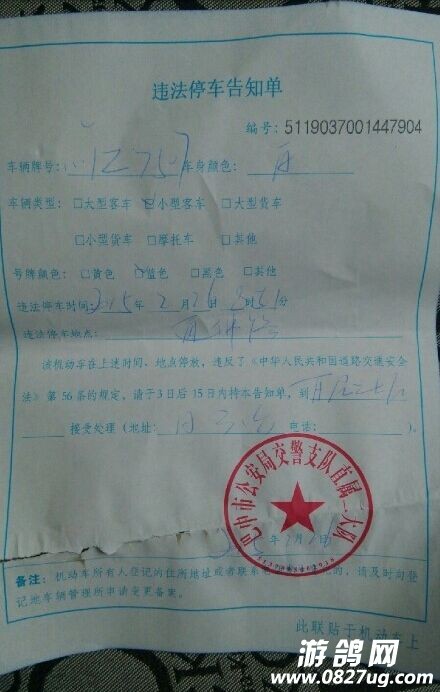 违法停车告知单
编号：5119037001447904
车辆牌号： 车身颜色：
车辆类型：□大型客车 □小型客车 □大型货车
□小型货车 □摩托车 □其他
号牌颜色：□黄色 □蓝色 □黑色 □其他
违法停车时间：2015年2月26日 时51分
违法停车地点：
该机动车在上述时间、地点停放，违反了《中华人民共和国道路交通安全
法》第56条的规定，请于3日后15日内持本告知单，到
接受处理（地址： 电话： ）。
巴中市公安局交警支队直属一大队
年 月
备注：机动车所有人登记的住所地址或者联系电 的，请及时向登
记地车辆管理所申请变更备案。
此联贴于机动车上
游鸽网
www.0827ug.com